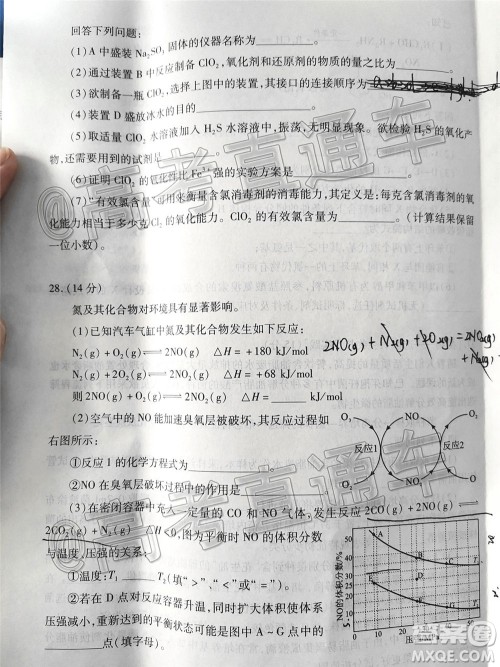 回答下列问题:
(1)A 中盛装 Na₂SO₃ 固体的仪器名称为________。
(2)通过装置 B 中反应制备 ClO₂,氧化剂和还原剂的物质的量之比为________。
(3)欲制备一瓶 ClO₂,选择上图中的装置,其接口的连接顺序为
(4)装置 D 盛放冰水的目的________。
(5)取适量 ClO₂ 水溶液加入 H₂S 水溶液中,振荡,无明显现象。欲检验 H₂S 的氧化产
物,还需要用到的试剂是________。
(6)证明 ClO₂ 的氧化性比 Fe³⁺ 强的实验方案是________。
(7)"有效氯含量"可用来衡量含氯消毒剂的消毒能力,其定义是:每克含氯消毒剂的氧
化能力相当于多少克 Cl₂ 的氧化能力。ClO₂ 的有效氯含量为________。(计算结果保留
一位小数)。
28.(14 分)
氮及其化合物对环境具有显著影响。
(1)已知汽车气缸中氮及其化合物发生如下反应:
N₂(g)+O₂(g)⇌2NO(g) ΔH=+180 kJ/mol
N₂(g)+2O₂(g)⇌2NO₂(g) ΔH=+68 kJ/mol
则 2NO(g)+O₂(g)⇌2NO₂(g) ΔH=________ kJ/mol
(2)空气中的 NO 能加速臭氧层被破坏,其反应过程如
右图所示:
O₃ NO O₂
反应1 反应2
O₂ NO₂ O
①反应 1 的化学方程式为________。
②NO 在臭氧层破坏过程中的作用是________。
(3)在密闭容器中充入一定量的 CO 和 NO 气体,发生反应 2CO(g)+2NO(g)⇌
2CO₂(g)+N₂(g) ΔH<0,图为平衡时 NO 的体积分数
与温度、压强的关系:
①温度:T₁____T₂(填">"、"<"或"=")。
②若在 D 点对反应容器升温,同时扩大体积使体系
压强减小,重新达到的平衡状态可能是图中 A~G 点中的
________点(填字母)。
NO的体积分数/%
@高考直通车